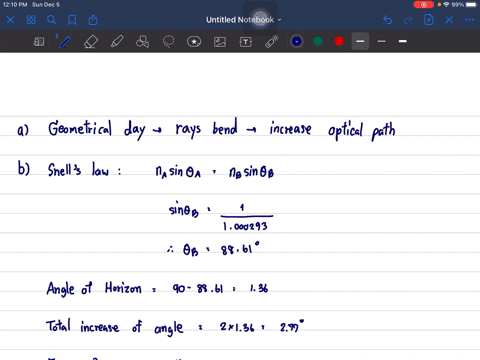 12:10 PM Sun Dec 5
99%
Untitled Notebook
a) Geometrical day → rays bend → increase optical path
b) Snell's law : nA sinθA = nB sinθB
sinθB = 1 / 1.000293
∴ θB = 88.61°
Angle of Horizon = 90 - 88.61 = 1.36
Total increase of angle = 2×1.36 = 2.77°